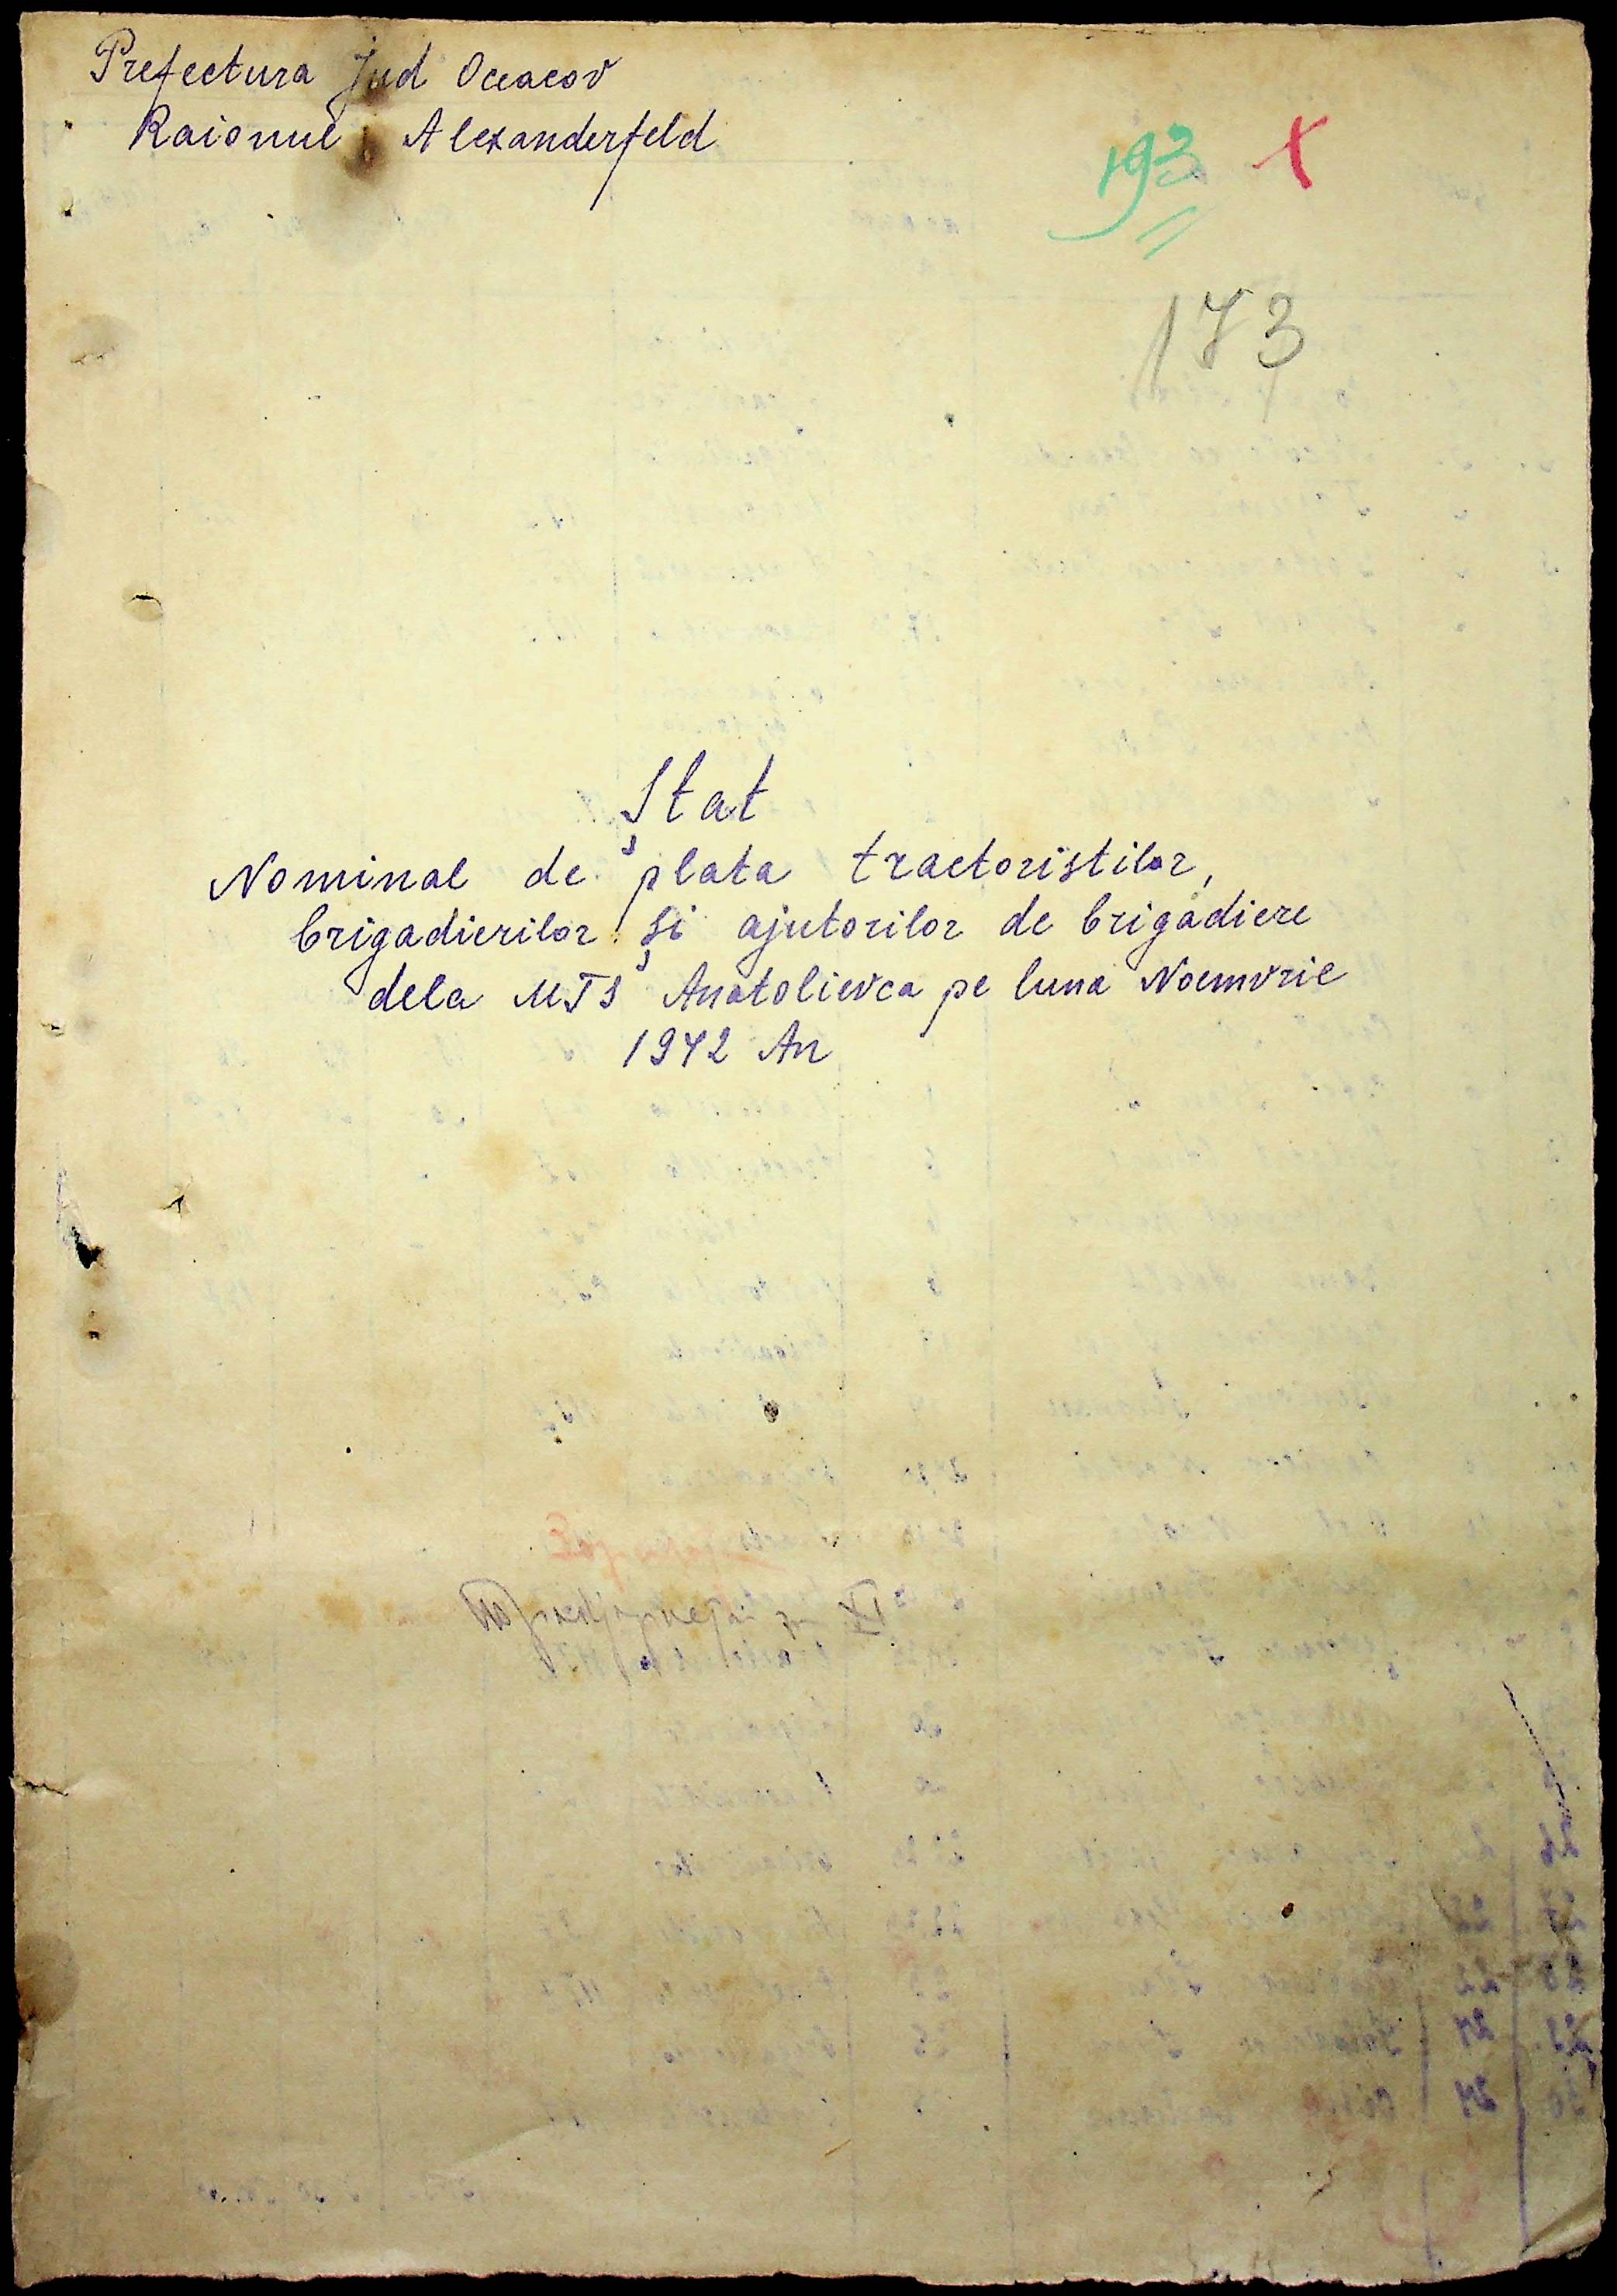 Prefectura Jud Oceacov
Raionul Alexanderfeld
193 X
173
Ștat
Nominal de plata tractoristilor,
brigadierilor și ajutorilor de brigadiere
dela MTS Anatolievca pe luna Noemvrie
1942 An